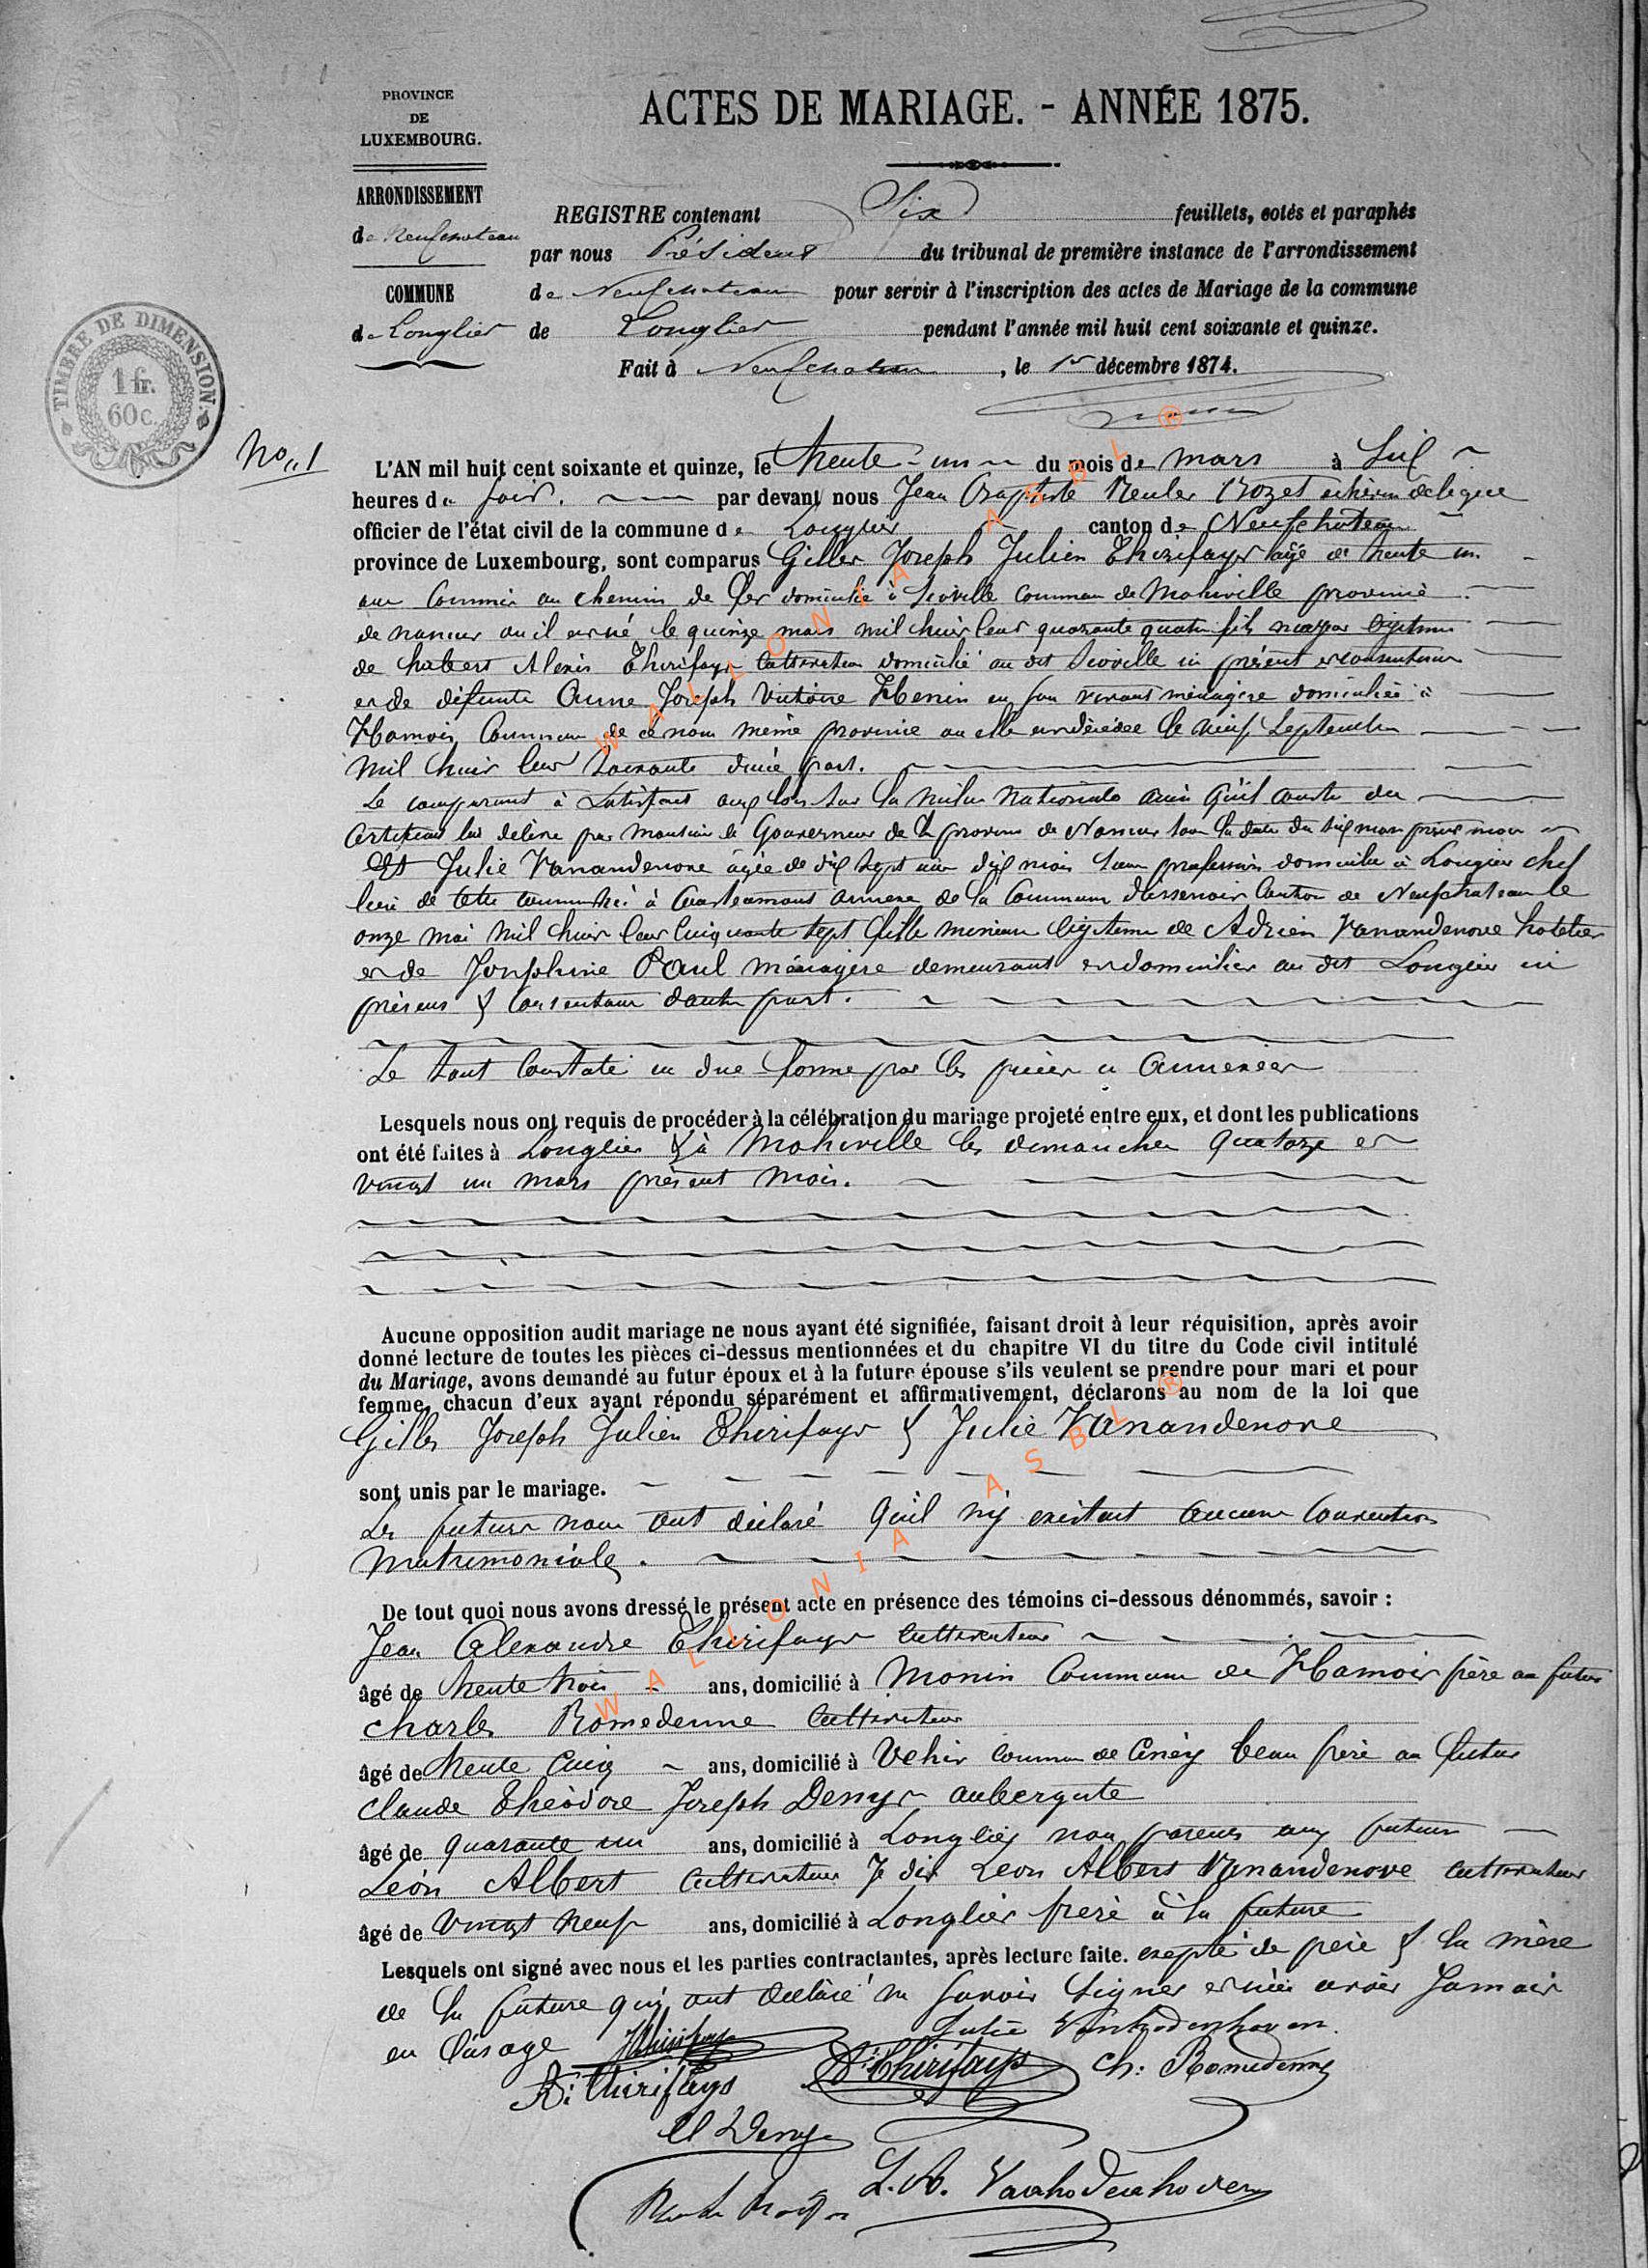 PROVINCE
DE
LUXEMBOURG.
ACTES DE MARIAGE. - ANNÉE 1875.
ARRONDISSEMENT
de Neufchateau
COMMUNE
de Longlier
REGISTRE contenant Six feuillets, cotés et paraphés
par nous Président du tribunal de première instance de l'arrondissement
de Neufchateau pour servir à l'inscription des actes de Mariage de la commune
de Longlier pendant l'année mil huit cent soixante et quinze.
Fait à Neufchateau, le 1er décembre 1874.
TIMBRE DE DIMENSION
1 fr.
60 c.
No 1
L'AN mil huit cent soixante et quinze, le trente-un du mois de mars à Six
heures du soir. par devant nous Jean Baptiste Reuler Rozet echevin delegue
officier de l'état civil de la commune de Longlier canton de Neufchateau
province de Luxembourg, sont comparus Gilles Joseph Julien Thirifays agé de trente un
ans Commis au chemin de fer domicilié à Scoville Commune de Mohiville province
de namur ou il est né le quinze mars mil huit cent quarante quatre fils majeur légitime
de hubert Alexis Thirifays Cultivateur domicilié au dit Scoville ici présent et consentant
et de défunte Anne Joseph Victoire Henin en son vivant ménagère domiciliée à
Hamois Commune de ce nom même province ou elle est décédée le neuf Septembre
mil huit cent soixante d'une part.
Le comparant à Satisfait aux lois sur la milice nationale ainsi qu'il conste du
certificat lui délivré par monsieur le Gouverneur de la province de Namur sous la date du six mars présent mois
Et Julie Vanandenove agée de dix sept ans dix mois sans profession domiciliée à Longlier chef
lieu de cette commune née à annexe de la Commune d'Assenois Canton de Neufchateau le
onze mai mil huit cent cinquante sept fille mineure légitime de Adrien Vanandenove hotelier
et de Josephine Paul ménagère demeurant et domiciliés au dit Longlier ici
présens & consentans d'autre part.
Le tout constaté en due forme par les pièces ci annexées
Lesquels nous ont requis de procéder à la célébration du mariage projeté entre eux, et dont les publications
ont été faites à Longlier & à Mohiville les dimanches quatorze et
vingt un mars présent mois.
Aucune opposition audit mariage ne nous ayant été signifiée, faisant droit à leur réquisition, après avoir
donné lecture de toutes les pièces ci-dessus mentionnées et du chapitre VI du titre du Code civil intitulé
du Mariage, avons demandé au futur époux et à la future épouse s'ils veulent se prendre pour mari et pour
femme, chacun d'eux ayant répondu séparément et affirmativement, déclarons au nom de la loi que
Gilles Joseph Julien Thirifays & Julie Vanandenove
sont unis par le mariage.
Les futurs nous ont déclaré qu'il n'y existait aucune Convention
matrimoniale.
De tout quoi nous avons dressé le présent acte en présence des témoins ci-dessous dénommés, savoir :
Jean Alexandre Thirifays Cultivateur
âgé de trente trois ans, domicilié à Monin Commune de Hamois frère au futur
Charles Romedenne Cultivateur
âgé de trente cinq ans, domicilié à Vehir commune de Ciney beau frère au futur
Claude Théodore Joseph Denys aubergiste
âgé de quarante un ans, domicilié à Longlier non parens aux futurs
Léon Albert Cultivateur Je dis Leon Albert Vanandenove cultivateur
âgé de vingt neuf ans, domicilié à Longlier frère à la future
Lesquels ont signé avec nous et les parties contractantes, après lecture faite. excepté de père & la mère
de la future qui ont déclaré ne savoir signer et n'en avoir Jamais
eu l'usage
JThirifays
Julie Vanhodenhoven
A: Thirifays
A: Thirifays
Ch: Romedenne
Cl Denys
L. A. Vanhodenhoven
WALLONIA ASBL ®
WALLONIA ASBL ®